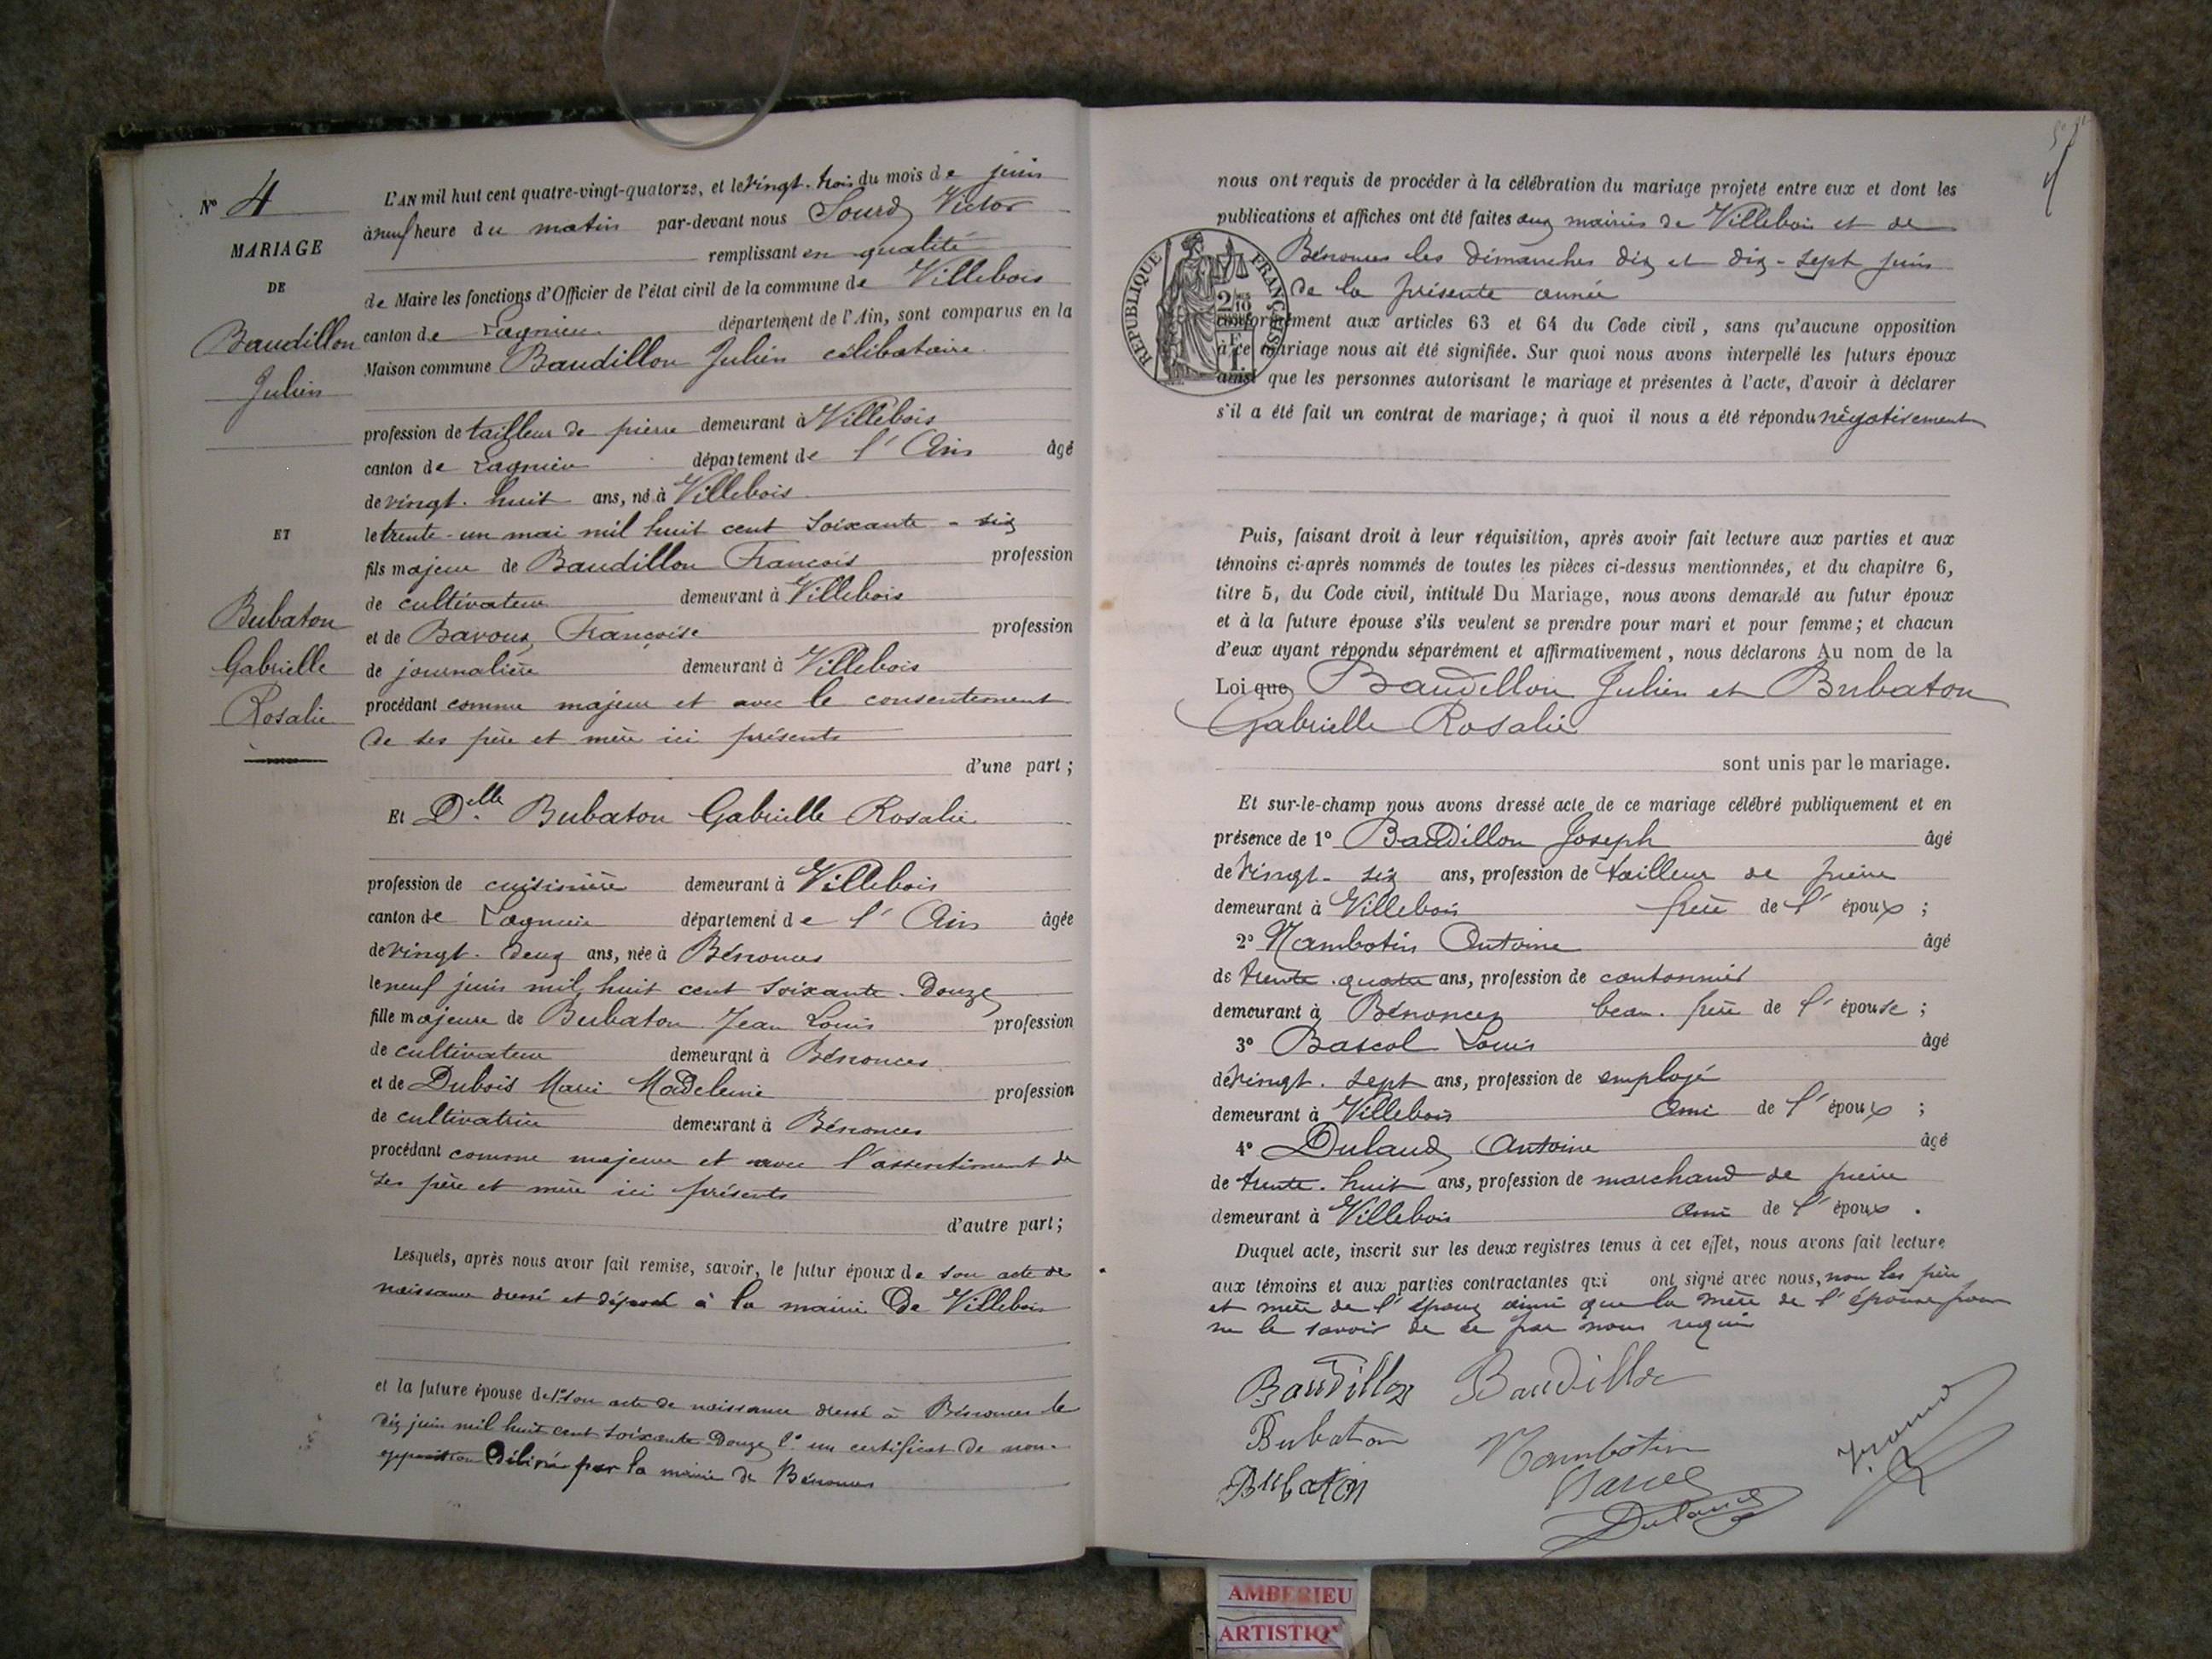 N° 4
MARIAGE
DE
Baudillon
Julien
ET
Bubaton
Gabrielle
Rosalie
L'AN mil huit cent quatre-vingt-quatorze, et le vingt-trois du mois de juin
à neuf heure du matin par-devant nous Sourd Victor
remplissant en qualité
de Maire les fonctions d'Officier de l'état civil de la commune de Villebois
canton de Lagnieu département de l'Ain, sont comparus en la
Maison commune Baudillon Julien célibataire
profession de tailleur de pierre demeurant à Villebois
canton de Lagnieu département de l'Ain âgé
de vingt-huit ans, né à Villebois
le trente-un mai mil huit cent soixante-six
fils majeur de Baudillon François profession
de cultivateur demeurant à Villebois
et de Bavoux Françoise profession
de journalière demeurant à Villebois
procédant comme majeur et avec le consentement
de ses père et mère ici présents
d'une part;
Et Delle Bubaton Gabrielle Rosalie
profession de cuisinière demeurant à Villebois
canton de Lagnieu département de l'Ain âgée
de vingt-deux ans, née à Bénonces
le neuf juin mil huit cent soixante-douze
fille majeure de Bubaton Jean Louis profession
de cultivateur demeurant à Bénonces
et de Dubois Marie Madeleine profession
de cultivatrice demeurant à Bénonces
procédant comme majeure et avec l'assentiment de
ses père et mère ici présents
d'autre part;
Lesquels, après nous avoir fait remise, savoir, le futur époux de son acte de
naissance dressé et déposé à la mairie de Villebois
et la future épouse de 1° son acte de naissance dressé à Bénonces le
dix juin mil huit cent soixante-douze 2° un certificat de non-
opposition délivré par la mairie de Bénonces
nous ont requis de procéder à la célébration du mariage projeté entre eux et dont les
publications et affiches ont été faites aux mairies de Villebois et de
Bénonces les dimanches dix et dix-sept juin
de la présente année
REPUBLIQUE FRANÇAISE
conformément aux articles 63 et 64 du Code civil, sans qu'aucune opposition
à ce mariage nous ait été signifiée. Sur quoi nous avons interpellé les futurs époux
ainsi que les personnes autorisant le mariage et présentes à l'acte, d'avoir à déclarer
s'il a été fait un contrat de mariage; à quoi il nous a été répondu négativement
Puis, faisant droit à leur réquisition, après avoir fait lecture aux parties et aux
témoins ci-après nommés de toutes les pièces ci-dessus mentionnées, et du chapitre 6,
titre 5, du Code civil, intitulé Du Mariage, nous avons demandé au futur époux
et à la future épouse s'ils veulent se prendre pour mari et pour femme; et chacun
d'eux ayant répondu séparément et affirmativement, nous déclarons Au nom de la
Loi que Baudillon Julien et Bubaton
Gabrielle Rosalie
sont unis par le mariage.
Et sur-le-champ nous avons dressé acte de ce mariage célébré publiquement et en
présence de 1° Baudillon Joseph âgé
de vingt-six ans, profession de tailleur de pierre
demeurant à Villebois frère de l'époux;
2° Nambotin Antoine âgé
de trente-quatre ans, profession de cantonnier
demeurant à Bénonces beau-frère de l'épouse;
3° Bascol Louis âgé
de vingt-sept ans, profession de employé
demeurant à Villebois ami de l'époux;
4° Dulaud Antoine âgé
de trente-huit ans, profession de marchand de pierre
demeurant à Villebois ami de l'époux.
Duquel acte, inscrit sur les deux registres tenus à cet effet, nous avons fait lecture
aux témoins et aux parties contractantes qui ont signé avec nous, non les père
et mère de l'époux ainsi que la mère de l'épouse pour
ne le savoir de ce par nous requis
Baudillon Baudillon
Bubaton Nambotin
Bubaton
Dulaud
AMBERIEU
ARTISTIQ